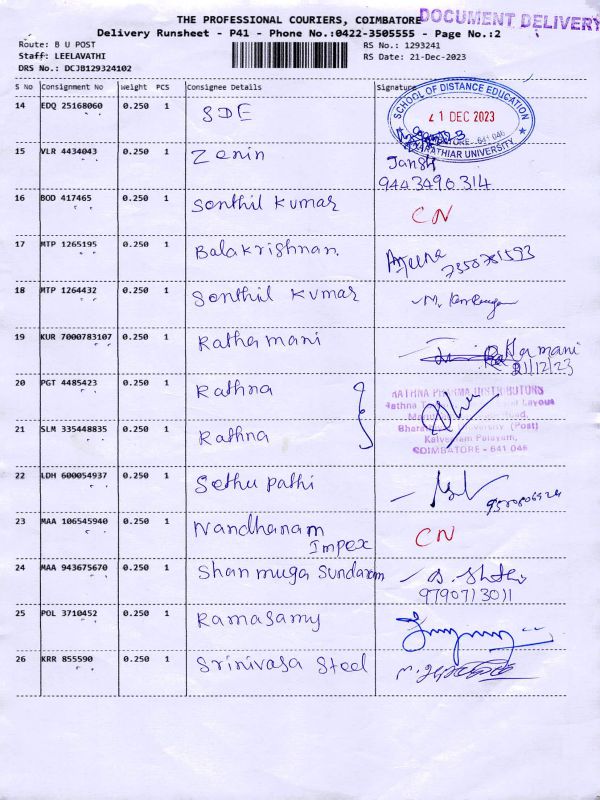 THE PROFESSIONAL COURIERS, COIMBATORE
DOCUMENT DELIVERY
Delivery Runsheet - P41 - Phone No.:0422-3505555 - Page No.:2
Route: B U POST
RS No.: 1293241
Staff: LEELAVATHI
RS Date: 21-Dec-2023
DRS No.: DCJB129324102
S No Consignment No Weight PCS Consignee Details Signature
14 EDQ 25168060 0.250 1 SDE
SCHOOL OF DISTANCE EDUCATION
21 DEC 2023
BHARATHIAR UNIVERSITY
641 046
15 VLR 4434043 0.250 1 Zenin
9443496314
16 BOD 417465 0.250 1 Sonthil Kumar CN
17 MTP 1265195 0.250 1 Balakrishnan.
18 MTP 1264432 0.250 1 Sonthil Kumar
19 KUR 7000783107 0.250 1 Rathamani
21/12/23
20 PGT 4485423 0.250 1 Rathna
RATHNA PHARMA DISTRIBUTORS
Layout
21 SLM 335448835 0.250 1 Rathna
(Post)
COIMBATORE - 641 046
22 LDH 600054937 0.250 1 Sethu pathi
23 MAA 106545940 0.250 1 Nandhanam CN
Impex
24 MAA 943675670 0.250 1 Shanmuga Sundaram
9790713011
25 POL 3710452 0.250 1 Ramasamy
26 KRR 855590 0.250 1 Srinivasa Steel